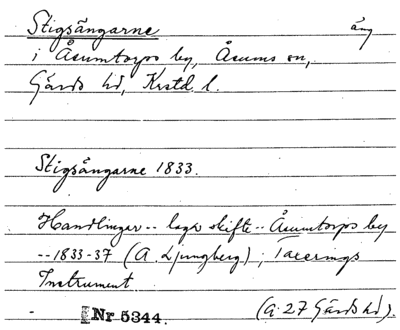 Stigsängarne äng
i Åsumtorps by, Åsums sn,
Gärds hd, Krstd. l.
Stigsängarne 1833.
Handlingar -- laga skifte -- Åsumtorps by
-- 1833-37 (A. Ljungberg); Taxerings
Instrument
- Nr 5344. (A: 27 Gärds hd).